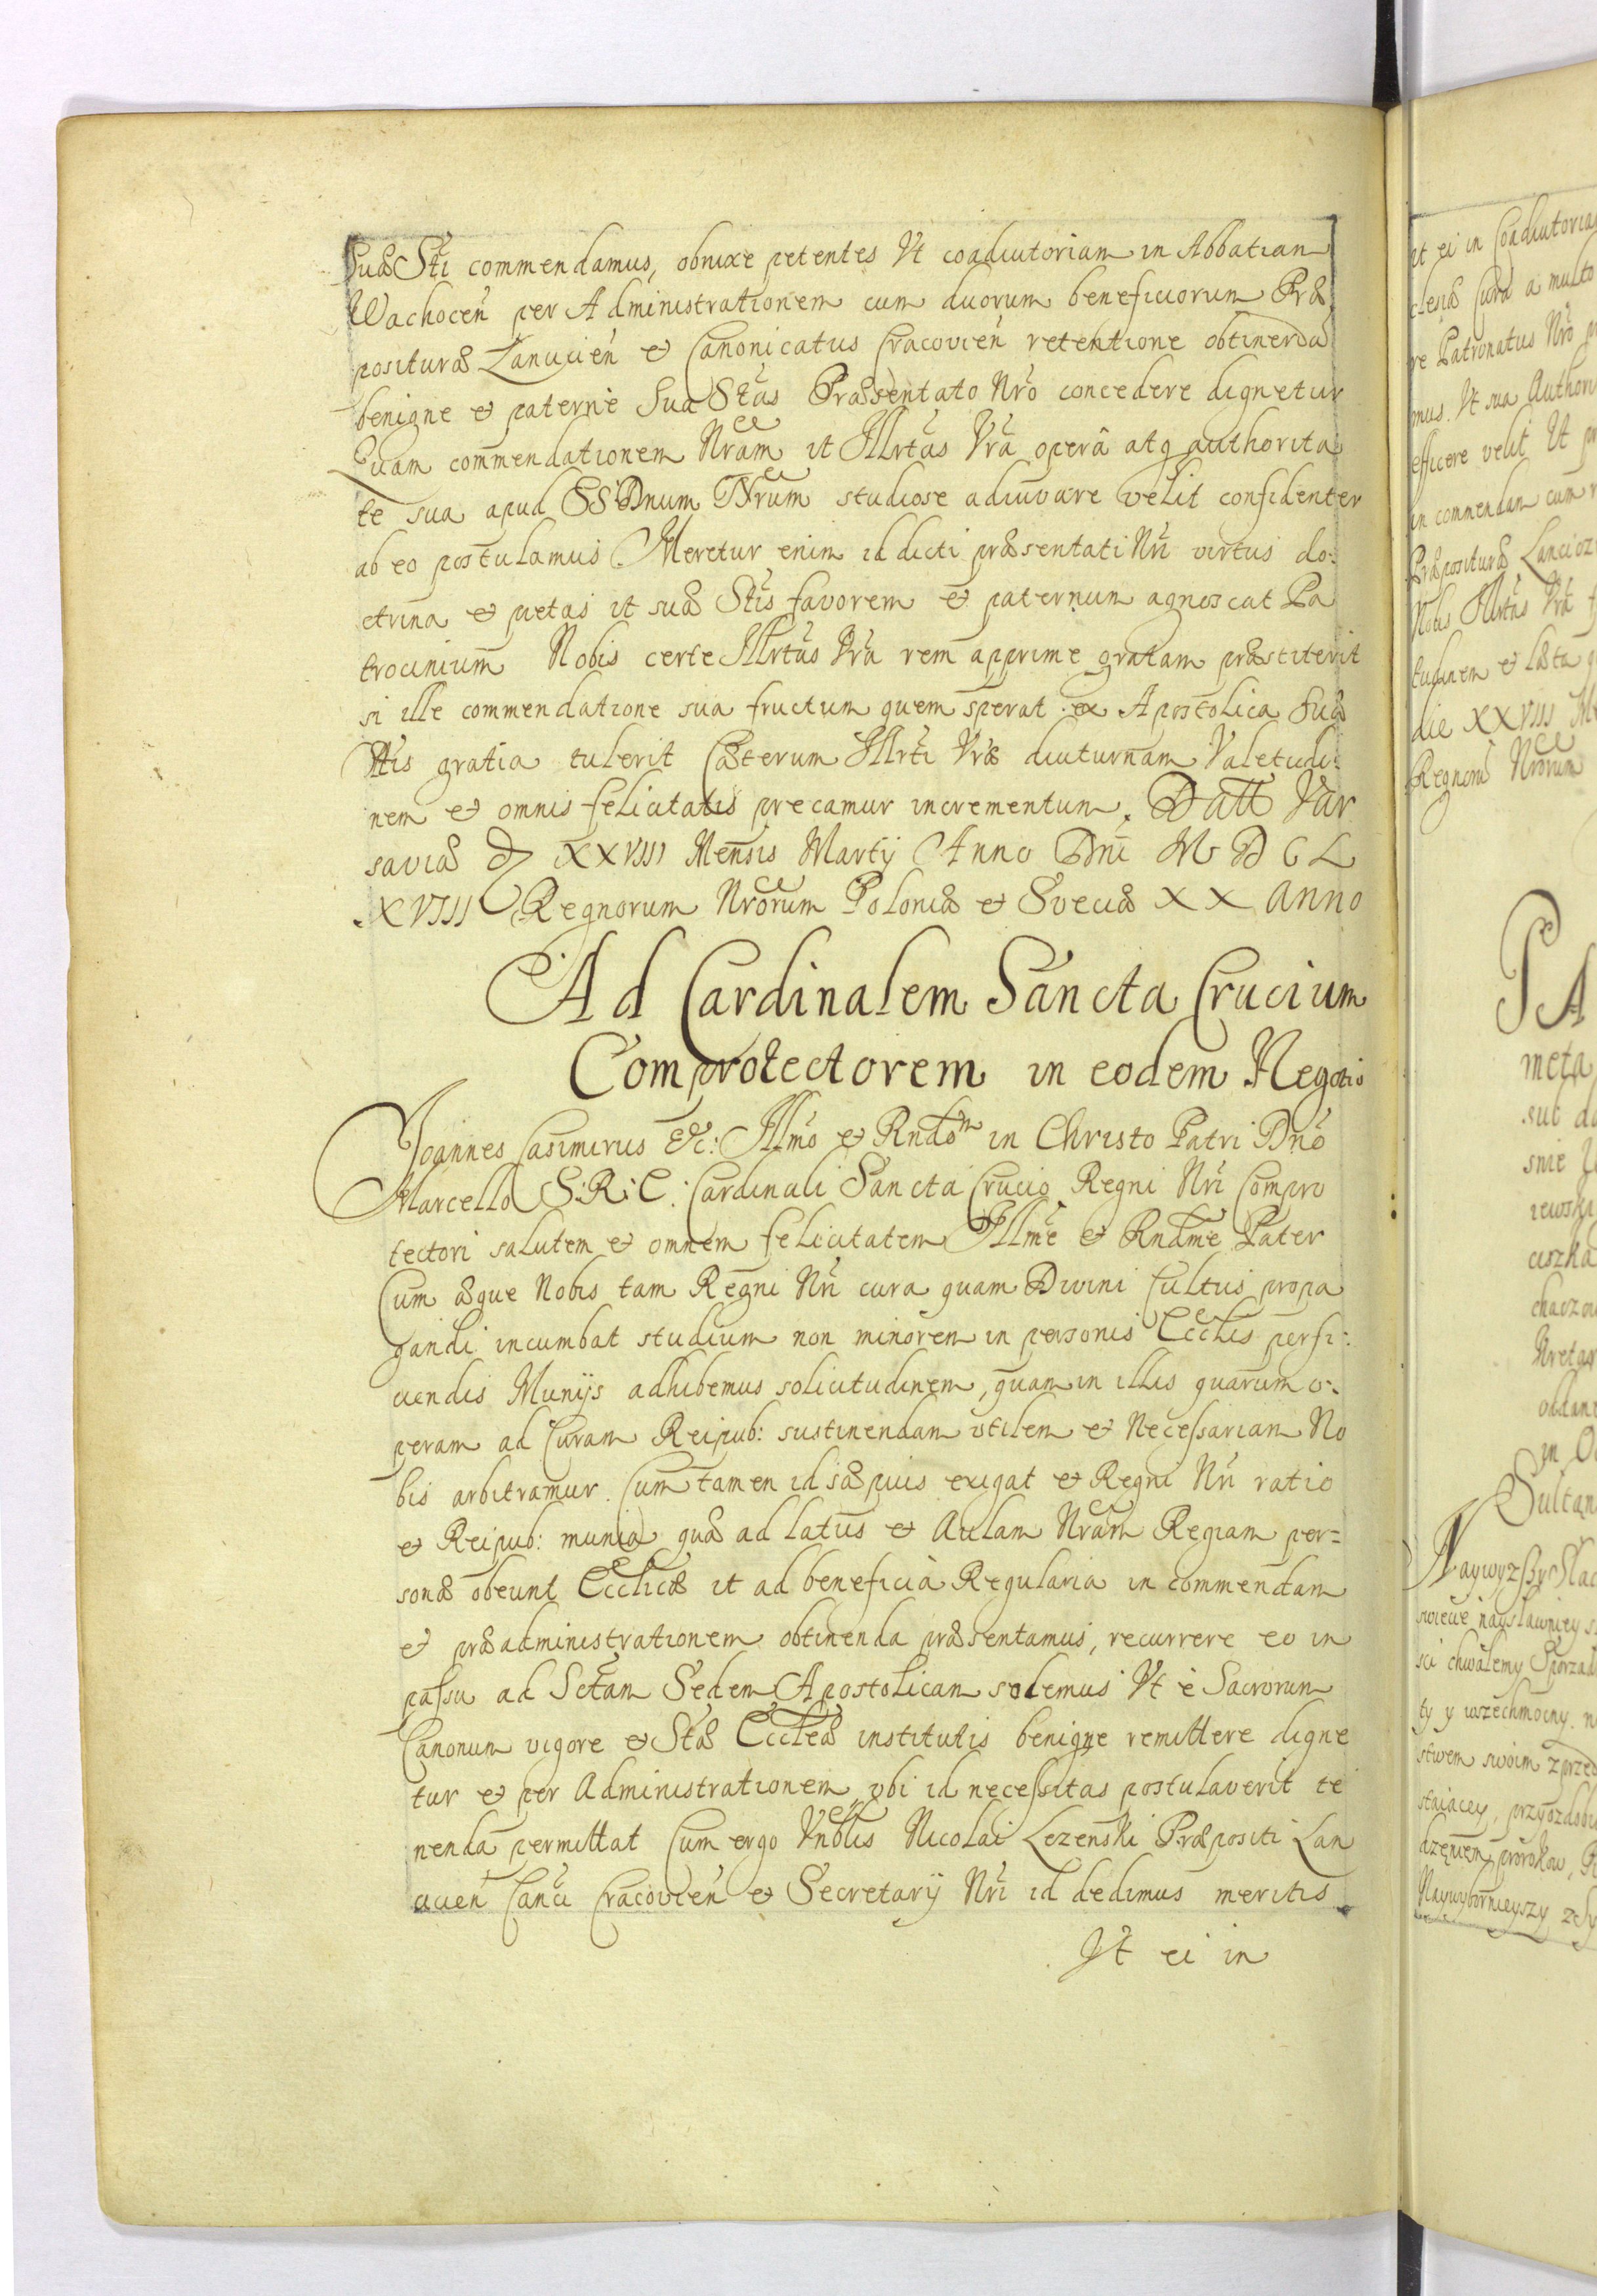 Suæ Stĩ commendamus, obnixe petentes Vt coadiutoriam in Abbatiam
Wachoceñ per Administrationem cum duorum beneficiorum Præ
posituræ Lanucieñ et Canonicatus Cracovieñ retentione obtinenda
benigne et paterne Sua Stãs Præsentato Nrõ concedere dignetur
Quam commendationem Nrãm ut Illrtãs Vrã operâ atq authorita
te sua apud SSDnum Nrũm studiose adiuvare velit confidenter
ab eo postulamus. Meretur enim id dicti præsentati Nrĩ virtus do:
ctrina et pietas ut suæ Stĩs favorem et paternum agnoscat Pa
trocinium Nobis certe Illrtãs Vrã rem apprime gratam præstiterit
si ille commendatione sua fructum quem sperat ex Apostolica Suæ
Sttis gratia tulerit Cæterum Illrtĩ Vræ diuturnam Valetudi:
nem et omnis felicitatis precamur incrementum. Datt Var
saviæ D XXVIII Mensis Martij Anno Dnĩ M D C L
XVIII Regnorum Nrõrum Poloniæ et Sveciæ XX Anno
Ad Cardinalem Sancta Crucium
Comprotectorem in eodem Negotio
Joannes Casimirus &c: Illmõ et Rndõ in Christo Patri Dnõ
Marcello S:R:C: Cardinali Sancta Crucio Regni Nrĩ Compro
tectori salutem et omnem felicitatem Illmẽ et Rndmẽ Pater
Cum æque Nobis tam Regni Nrĩ cura quam Divini Cultus propa
gandi incumbat studium non minorem in personis Ecclis perfi:
ciendis Munijs adhibemus solicitudinem, quam in illis quarum o:
peram ad Curam Reipub: sustinendam utilem et Necessariam No
bis arbitramur. Cum tamen id sæpius exigat et Regni Nrĩ ratio
et Reipub: munia quæ ad latus et Aulam Nrãm Regiam per=
sonæ obeunt Ecclicæ ut ad beneficia Regularia in commendam
et præadministrationem obtinenda præsentamus, recurrere eo in
passu ad Sctãm Sedem Apostolicam solemus Vt è Sacrorum
Canonum vigore et Stæ Eccleæ institutis benigne remittere digne
tur et per Administrationem ubi id necessitas postulaverit te
nenda permittat Cum ergo Vnblis Nicolai Lezenski Præpositi Lan
cicieñ Canci Cracovieñ et Secretarij Nrĩ id dedimus meritis
Vt ei in
ut ei in Coadiutoria
clesiæ Cura a multo
re Patronatus Nrõ
mus. Vt sua Authori
efficere velit Ut
in commendam cum
Præposituræ Lancioz
Nobis Illrtãs Vrã
tudinem et læta
die XXVIII
Regnorũ Nrõrum
meta
sub
snie
ciszka
Sultan
Naywyzszy
sci chwalemy Sporzad
ty y wszechmocny
stwem swoim zprzed
staiacey, przyozdobi
dzeniem prorokow,
Naywybornieyszy